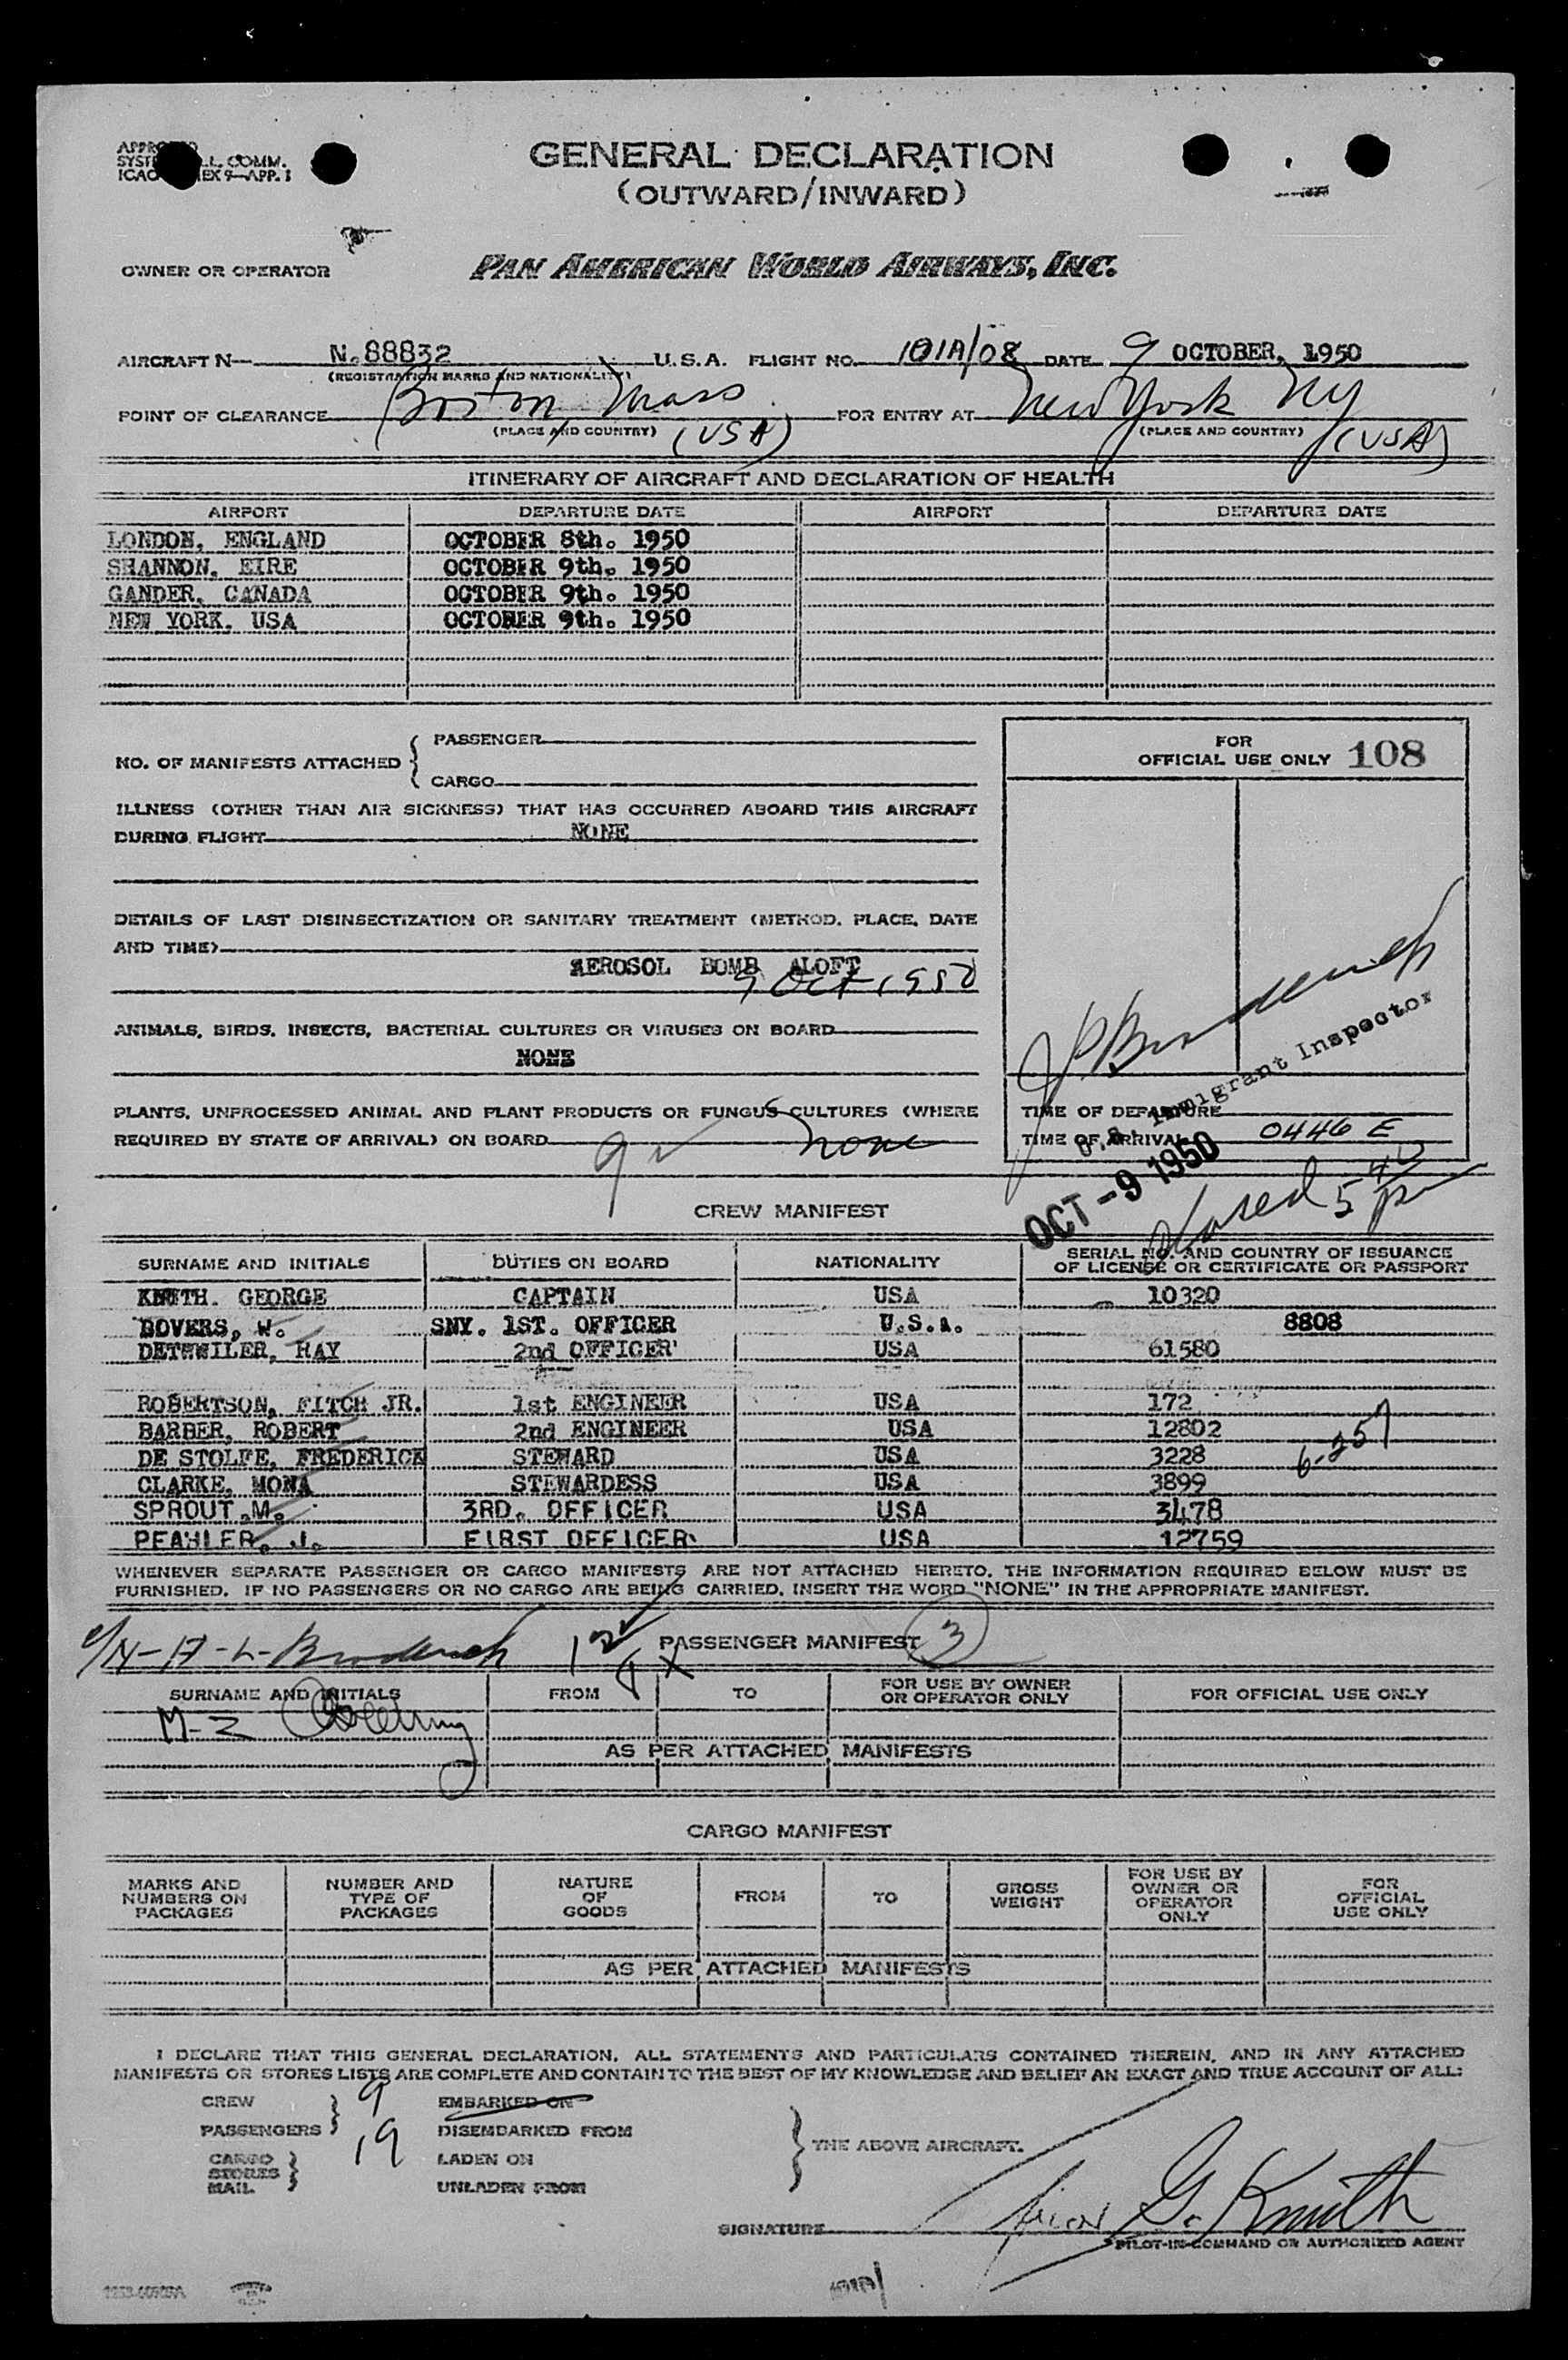 GENERAL DECLARATION
(OUTWARD/INWARD)
OWNER OR OPERATOR PAN AMERICAN WORLD AIRWAYS, INC.
AIRCRAFT N— N.88832 U.S.A. FLIGHT NO. 101A/08 DATE 9 OCTOBER, 1950
(REGISTRATION MARKS AND NATIONALITY)
POINT OF CLEARANCE Boston, Mass (USA) FOR ENTRY AT New York NY (USA)
(PLACE AND COUNTRY) (PLACE AND COUNTRY)
ITINERARY OF AIRCRAFT AND DECLARATION OF HEALTH
AIRPORT DEPARTURE DATE AIRPORT DEPARTURE DATE
LONDON, ENGLAND OCTOBER 8th. 1950
SHANNON, EIRE OCTOBER 9th. 1950
GANDER, CANADA OCTOBER 9th. 1950
NEW YORK. USA OCTOBER 9th. 1950
NO. OF MANIFESTS ATTACHED { PASSENGER
CARGO
FOR
OFFICIAL USE ONLY 108
ILLNESS (OTHER THAN AIR SICKNESS) THAT HAS OCCURRED ABOARD THIS AIRCRAFT
DURING FLIGHT NONE
DETAILS OF LAST DISINSECTIZATION OR SANITARY TREATMENT (METHOD, PLACE, DATE
AND TIME)
AEROSOL BOMB ALOFT
9 Oct 1950
ANIMALS, BIRDS, INSECTS, BACTERIAL CULTURES OR VIRUSES ON BOARD
NONE
PLANTS, UNPROCESSED ANIMAL AND PLANT PRODUCTS OR FUNGUS CULTURES (WHERE
REQUIRED BY STATE OF ARRIVAL) ON BOARD none
U.S. Immigrant Inspector
TIME OF DEPARTURE
TIME OF ARRIVAL 0446 E
OCT -9 1950
CREW MANIFEST
SURNAME AND INITIALS DUTIES ON BOARD NATIONALITY SERIAL NO. AND COUNTRY OF ISSUANCE
OF LICENSE OR CERTIFICATE OR PASSPORT
KNUTH. GEORGE CAPTAIN USA 10320
BOVERS, W. SNY. 1ST. OFFICER U.S.A. 8808
DETWEILER, RAY 2nd OFFICER USA 61580
ROBERTSON, FITCH JR. 1st ENGINEER USA 172
BARBER, ROBERT 2nd ENGINEER USA 12802
DE STOLFE, FREDERICK STEWARD USA 3228
CLARKE, MONA STEWARDESS USA 3899
SPROUT.M. 3RD. OFFICER USA 3478
PFAHLER. J. FIRST OFFICER USA 12759
WHENEVER SEPARATE PASSENGER OR CARGO MANIFESTS ARE NOT ATTACHED HERETO, THE INFORMATION REQUIRED BELOW MUST BE
FURNISHED. IF NO PASSENGERS OR NO CARGO ARE BEING CARRIED, INSERT THE WORD "NONE" IN THE APPROPRIATE MANIFEST.
PASSENGER MANIFEST 3
SURNAME AND INITIALS FROM TO FOR USE BY OWNER
OR OPERATOR ONLY FOR OFFICIAL USE ONLY
AS PER ATTACHED MANIFESTS
CARGO MANIFEST
MARKS AND
NUMBERS ON
PACKAGES NUMBER AND
TYPE OF
PACKAGES NATURE
OF
GOODS FROM TO GROSS
WEIGHT FOR USE BY
OWNER OR
OPERATOR
ONLY FOR
OFFICIAL
USE ONLY
AS PER ATTACHED MANIFESTS
I DECLARE THAT THIS GENERAL DECLARATION, ALL STATEMENTS AND PARTICULARS CONTAINED THEREIN, AND IN ANY ATTACHED
MANIFESTS OR STORES LISTS ARE COMPLETE AND CONTAIN TO THE BEST OF MY KNOWLEDGE AND BELIEF AN EXACT AND TRUE ACCOUNT OF ALL:
CREW 9 EMBARKED ON
PASSENGERS 19 DISEMBARKED FROM
THE ABOVE AIRCRAFT.
CARGO LADEN ON
STORES
MAIL UNLADEN FROM
SIGNATURE
PILOT-IN-COMMAND OR AUTHORIZED AGENT